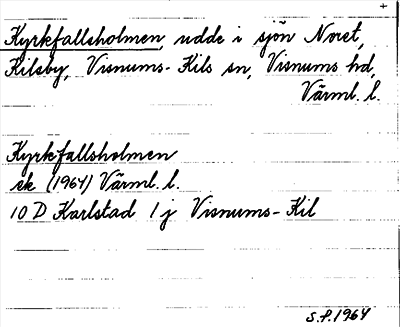 +
Kyrkfallsholmen, udde i sjön Noret,
Kilsby, Visnums-Kils sn, Visnums hd,
Värml. l.
Kyrkfallsholmen
ek (1964) Värml. l.
10 D Karlstad 1 j Visnums-Kil
S.P. 1964